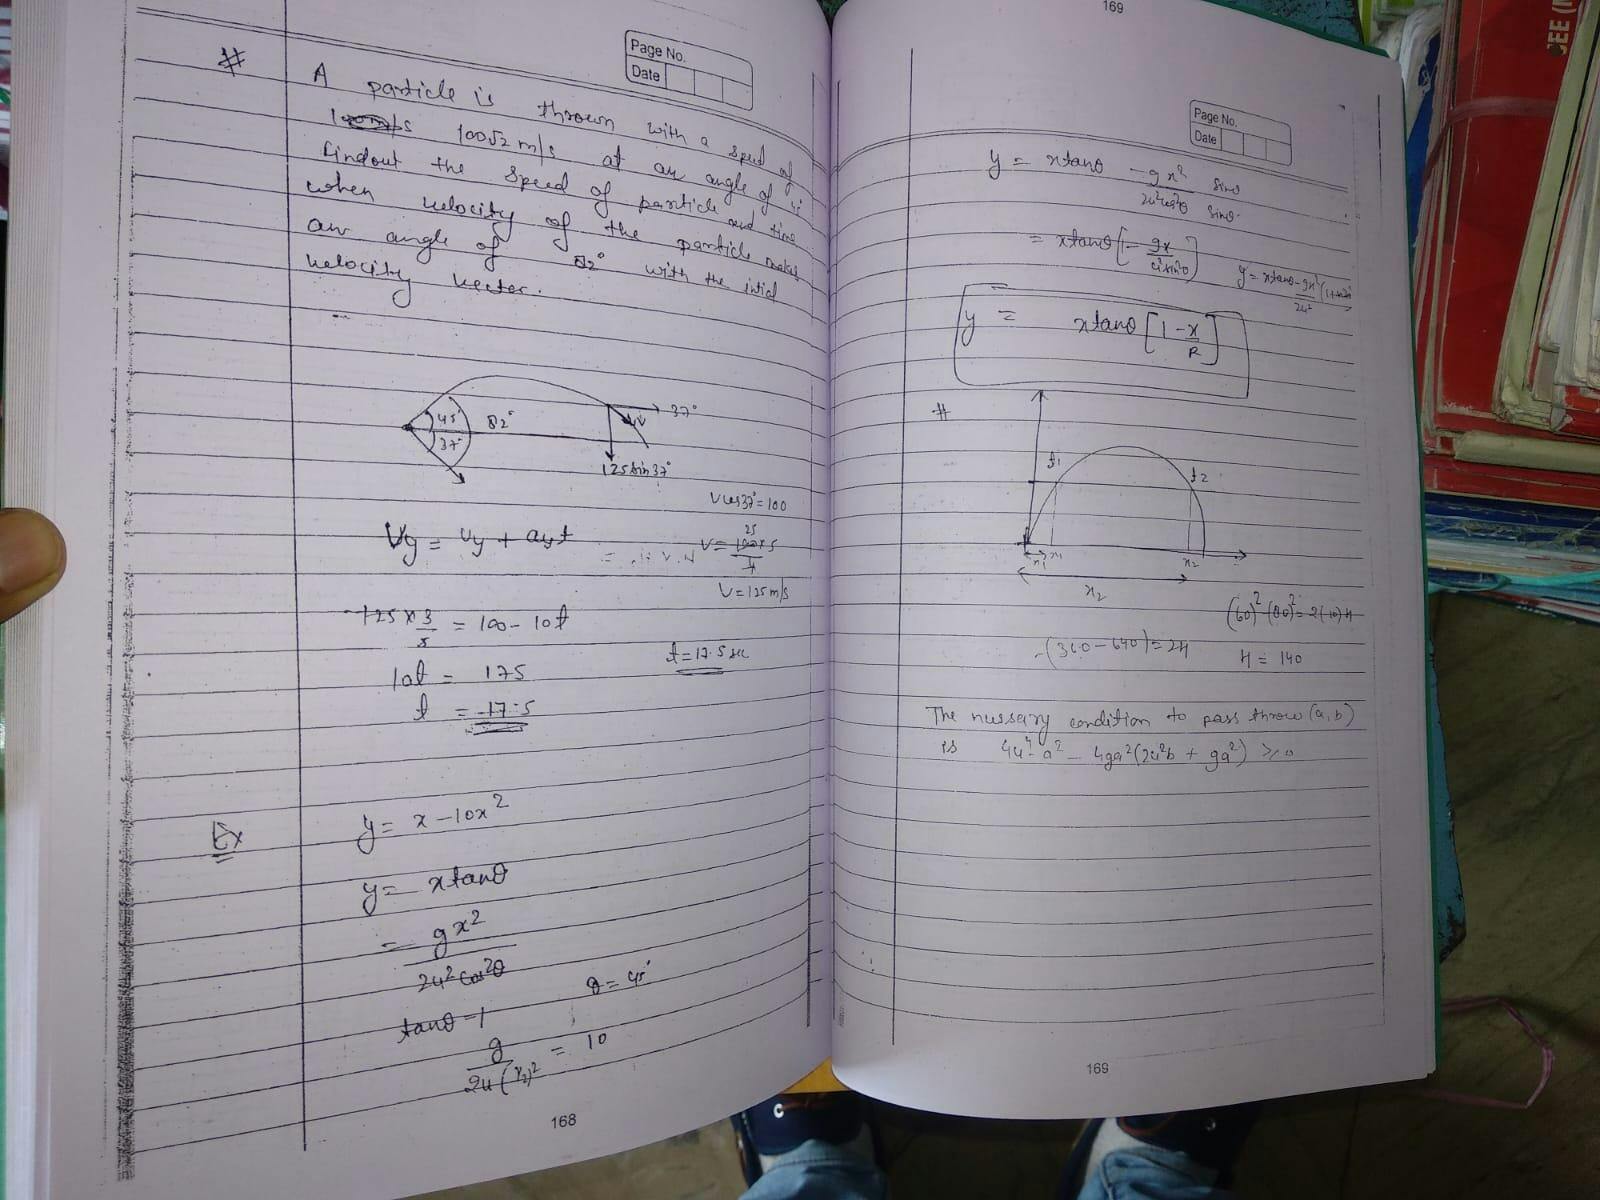 Page No.
Date
#
A particle is thrown with a speed of
100√2 m/s at an angle of
findout the speed of particle and time
when velocity of the particle makes
an angle of 82° with the intial
velocity vector.
45°
37°
82°
37°
V
125 sin 37°
V cos 37° = 100
Vy = uy + ayt
25
V = 100 x 5
4
V = 125 m/s
-125 x 3/5 = 100 - 10t
t = 17.5 sec
10t = 175
t = 17.5
Ex
y = x - 10x²
y = x tanθ
- gx²
2u² cos²θ
tanθ = 1
θ = 45°
g = 10
168
169
Page No.
Date
y = x tanθ - gx² sinθ
2u²cos²θ sinθ
= x tanθ [1 - gx
y = x tanθ - gx²
2u²
y = x tanθ [1 - x/R]
#
t1
t2
x1
x1
x2
x2
(60)² - (80)² = 2(-10)H
-(360-640) = 2H
H = 140
The nussary condition to pass throw (a, b)
is 4u⁴ a² - 4ga² (2u²b + ga²) ≥ 0
169
CEE